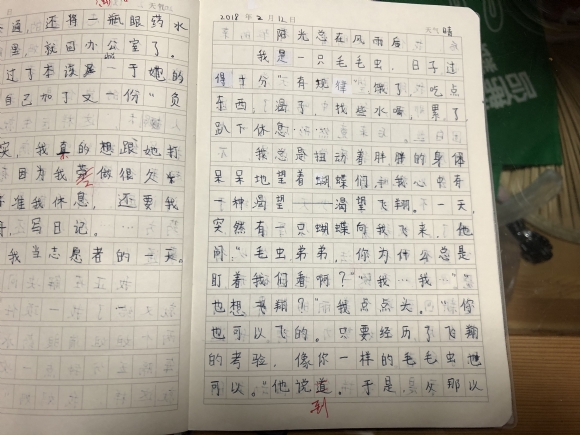 通，还得一瓶眼药水
里，就回办公室了。
过了本该是一于她的
自己加了又一份“负
实，我真的想跟她打
因为我
做很久
准我休息，还要我
，写日记。
我当志愿者的一天。
2018年2月12日 天气 晴
阳光总在风雨后
我是一只毛毛虫，日子过
得十分“有规律”饿了，吃点
东西，渴了，找些水喝，累了，
趴下休息……
我总是扭动着胖胖的身体
呆呆地望着蝴蝶们，我心里有
一种渴望——渴望飞翔。一天，
突然有一只蝴蝶向我飞来，他
问：“毛虫弟弟，你为什么总是
盯着我们看啊？”“我…我
也想飞翔？”我点点头。“你
也可以飞的。只要经历了飞翔
的考验，像你一样的毛毛虫也
可以。”他说道。于是，从那以
到